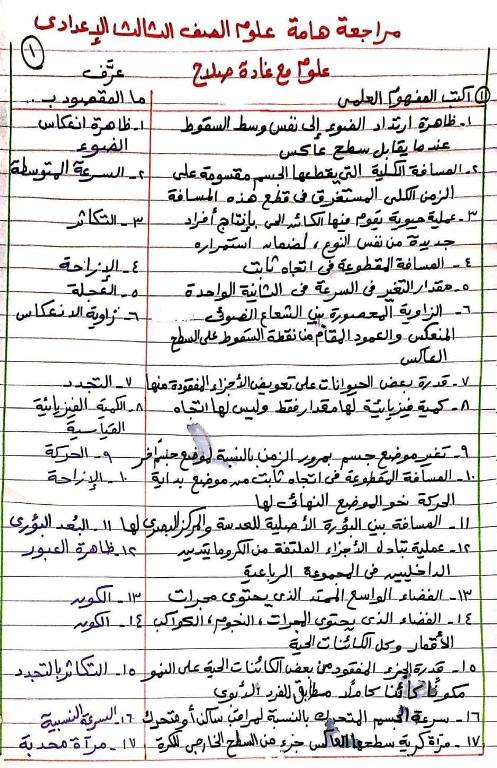 مراجعة هامة علوم الصف الثالث الإعدادى
١
علوم مع غادة صلاح
عرَّف
١ أكتب المفهوم العلمى
ما المقصود بـ...
١- ظاهرة ارتداد الضوء إلى نفس وسط السقوط
١- ظاهرة انعكاس
عندما يقابل سطح عاكس
الضوء
٢- المسافة الكلية التى يقطعها الجسم مقسومة على
٢- السرعة المتوسطة
الزمن الكلى المستغرق فى قطع هذه المسافة
٣- عملية حيوية يقوم فيها الكائن الحى بإنتاج أفراد
٣- التكاثر
جديدة من نفس النوع، لضمان استمراره
٤- المسافة المقطوعة فى اتجاه ثابت
٤- الإزاحة
٥- مقدار التغير فى السرعة فى الثانية الواحدة
٥- العجلة
٦- الزاوية المحصورة بين الشعاع الضوئى
٦- زاوية الانعكاس
المنعكس والعمود المقام من نقطة السقوط على السطح
العاكس
٧- قدرة بعض الحيوانات على تعويض الأجزاء المفقودة منها
٧- التجدد
٨- كمية فيزيائية لها مقدار فقط وليس لها اتجاه
٨- الكمية الفيزيائية
القياسية
٩- تغير موضع جسم بمرور الزمن بالنسبة لموضع جسم آخر
٩- الحركة
١٠- المسافة المقطوعة فى اتجاه ثابت من موضع بداية
١٠- الإزاحة
الحركة نحو الموضع النهائى لها
١١- المسافة بين البؤرة الأصلية للعدسة والمركز البصرى لها
١١- البُعد البؤرى
١٢- عملية تبادل الأجزاء الملتفة من الكروماتيدين
١٢- ظاهرة العبور
الداخليين فى المجموعة الرباعية
١٣- الفضاء الواسع الممتد الذى يحتوى مجرات
١٣- الكون
١٤- الفضاء الذى يحتوى المجرات، النجوم، الكواكب
١٤- الكون
الأقمار وكل الكائنات الحية
١٥- قدرة الجزء المفقود من بعض الكائنات الحية على النمو
١٥- التكاثر بالتجدد
مكونًا كائنا كاملا مطابق للفرد الأبوى
١٦- سرعة الجسم المتحرك بالنسبة لمراقب ساكن أو متحرك
١٦- السرعة النسبية
١٧- مرآة كرية سطحها العاكس جزء من السطح الخارجى للكرة
١٧- مرآة محدبة